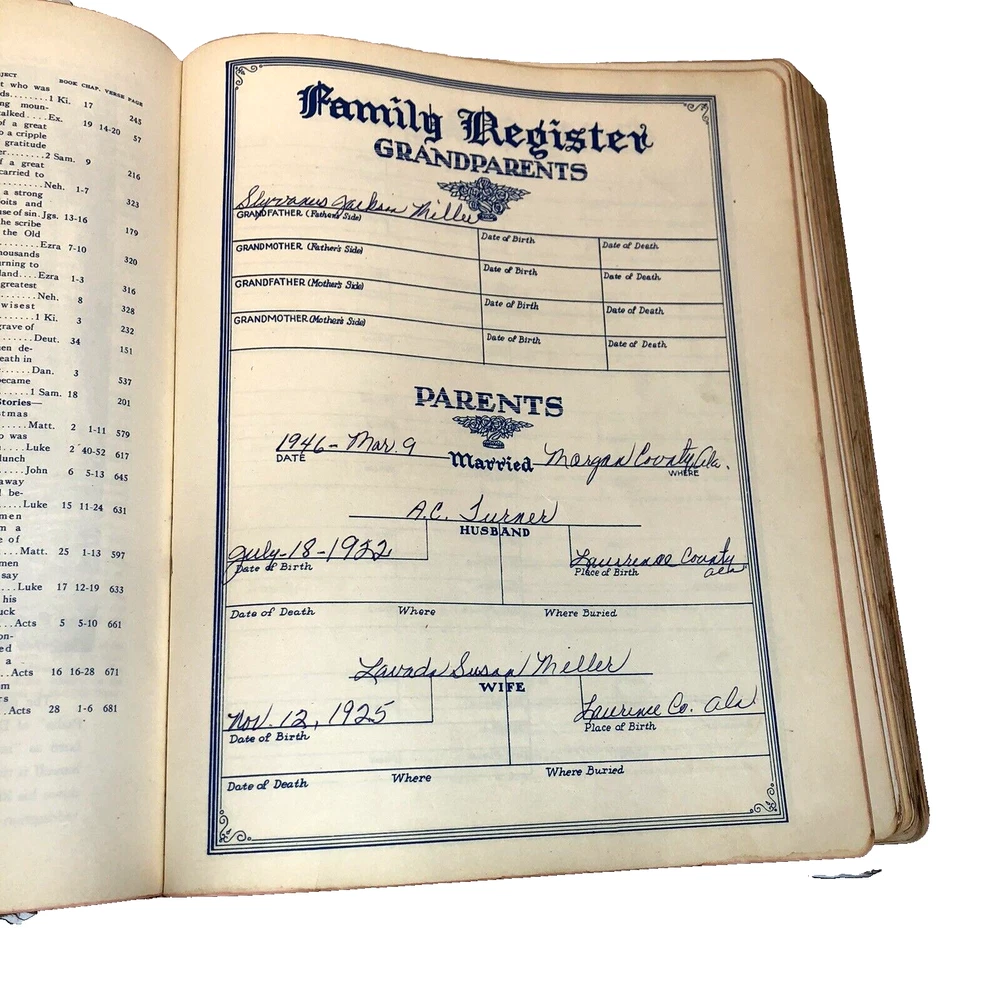 JECT BOOK CHAP. VERSE PAGE
t who was
ds........1 Ki. 17 245
ng moun-
talked....Ex. 19 14-20 57
of a great
o a cripple
gratitude
er........2 Sam. 9 216
f a great
carried to
........Neh. 1-7 323
a strong
oits and
use of sin. Jgs. 13-16 179
he scribe
the Old
........Ezra 7-10 320
housands
urning to
land....Ezra 1-3 316
greatest
........Neh. 8 328
wisest
........1 Ki. 3 232
grave of
......Deut. 34 151
en de-
eath in
......Dan. 3 537
ecame
......1 Sam. 18 201
Stories—
stmas
......Matt. 2 1-11 579
o was
....Luke 2 40-52 617
lunch
.....John 6 5-13 645
away
l be-
....Luke 15 11-24 631
men
m a
e of
....Matt. 25 1-13 597
men
say
...Luke 17 12-19 633
his
uck
...Acts 5 5-10 661
on-
ed
a
..Acts 16 16-28 671
m
rs
..Acts 28 1-6 681
Family Register
GRANDPARENTS
Slyvanus Jackson Miller
GRANDFATHER (Father's Side) Date of Birth Date of Death
GRANDMOTHER (Father's Side) Date of Birth Date of Death
GRANDFATHER (Mother's Side) Date of Birth Date of Death
GRANDMOTHER (Mother's Side) Date of Birth Date of Death
PARENTS
1946 - Mar. 9 Married Morgan County Ala.
DATE WHERE
A.C. Turner
HUSBAND
July-18-1922 Lawrence County Ala
Date of Birth Place of Birth
Date of Death Where Where Buried
Lavada Susan Miller
WIFE
Nov. 12, 1925 Lawrence Co. Ala.
Date of Birth Place of Birth
Date of Death Where Where Buried